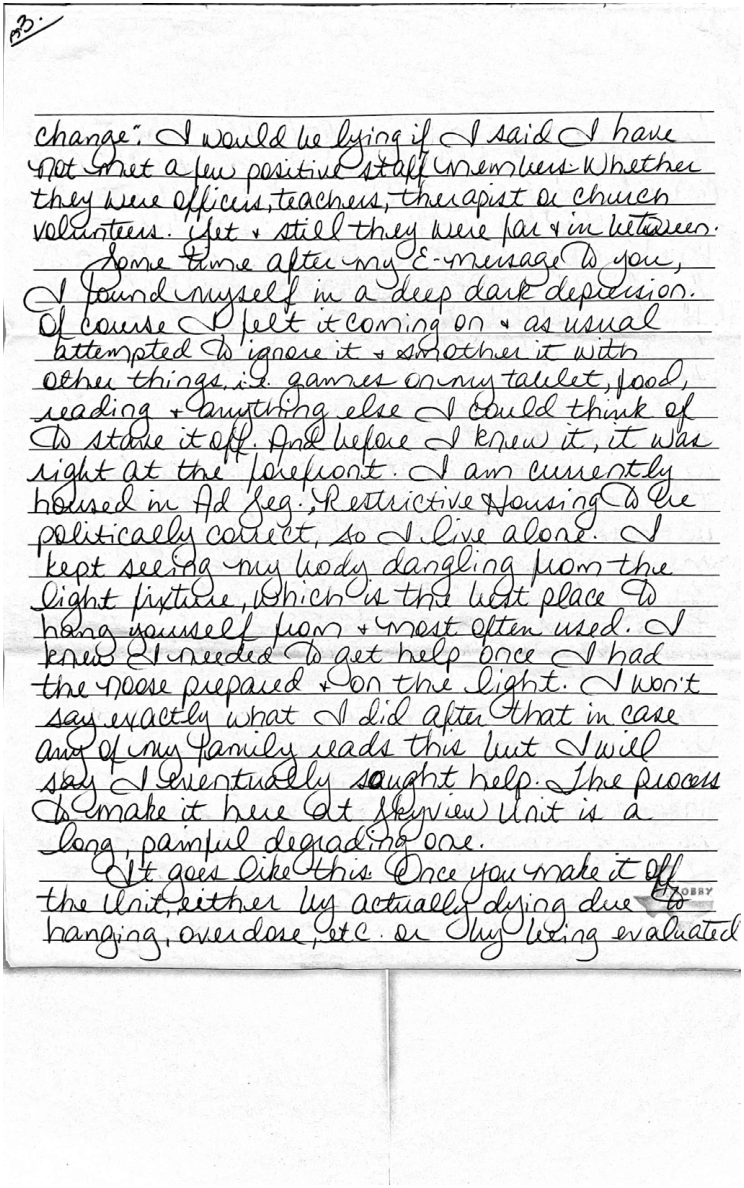 3.
change". I would be lying if I said I have
not met a few positive staff members whether
they were officers, teachers, therapist or church
volunteers. Yet & still they were far & in between.
Some time after my E-message to you,
I found myself in a deep dark depression.
Of course I felt it coming on & as usual
attempted to ignore it & smother it with
other things, i.e. games on my tablet, food,
reading & anything else I could think of
to stave it off. And before I knew it, it was
right at the forefront. I am currently
housed in Ad Seg., Restrictive Housing to be
politically correct, so I live alone. I
kept seeing my body dangling from the
light fixture, which is the best place to
hang yourself from & most often used. I
knew I needed to get help once I had
the noose prepared & on the light. I won't
say exactly what I did after that in case
any of my family reads this but I will
say I eventually sought help. The process
to make it here at Skyview Unit is a
long, painful degrading one.
It goes like this. Once you make it off
the Unit, either by actually dying due to
HOBBY
hanging, overdose, etc. or by being evaluated